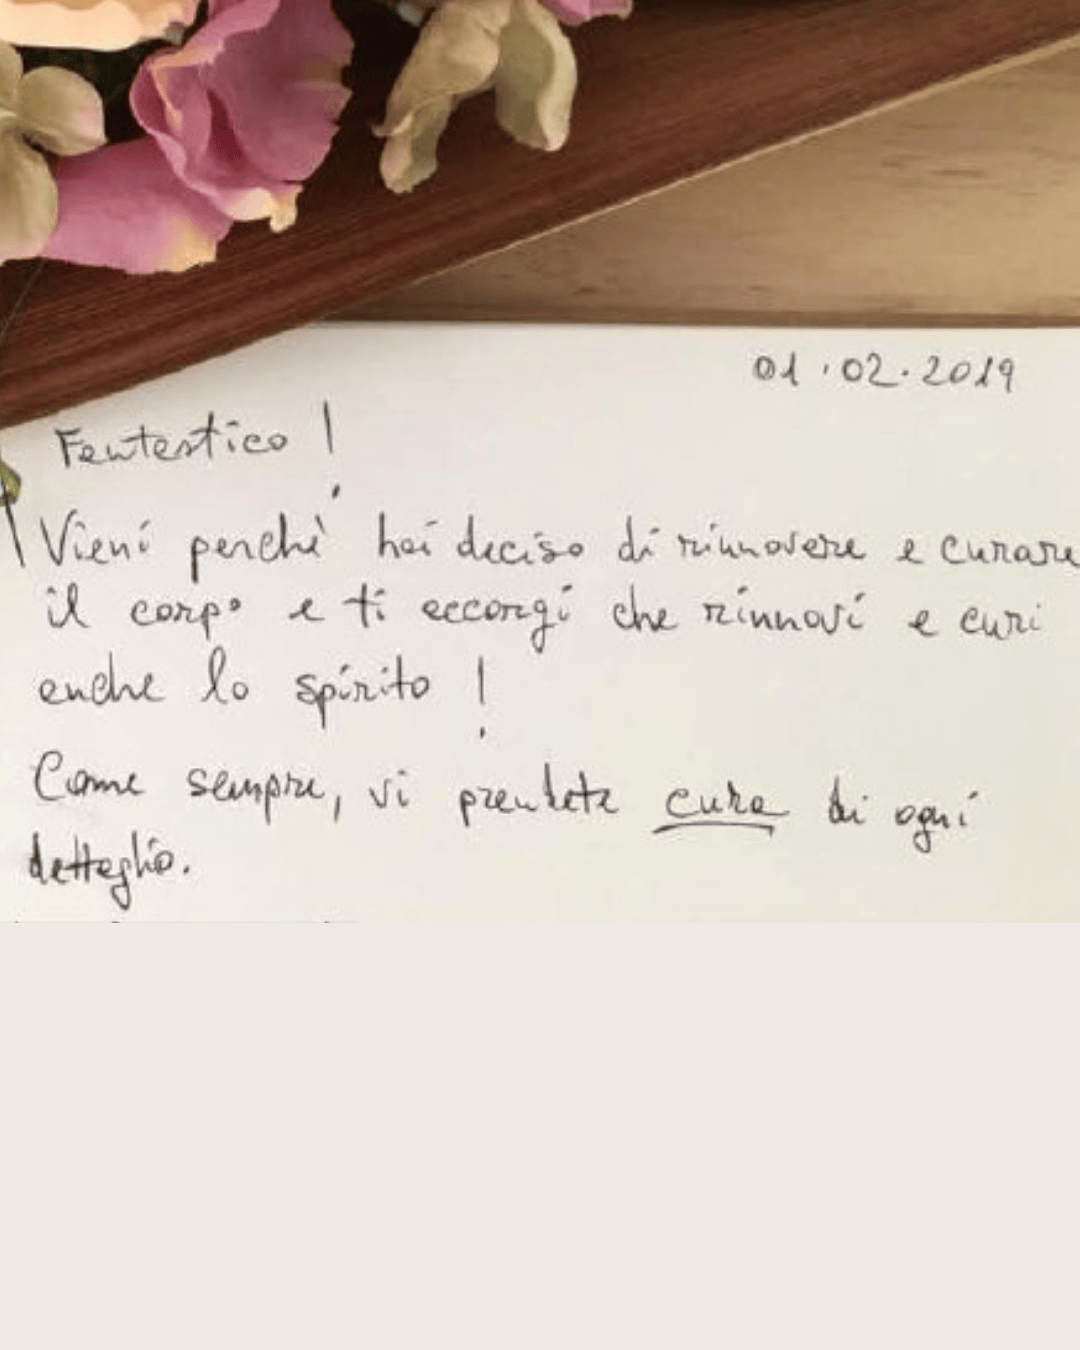 01.02.2019
Fantastico!
Vieni perchè hai deciso di rinnovare e curare
il corpo e ti accorgi che rinnovi e curi
anche lo spirito!
Come sempre, vi prendete cura di ogni
dettaglio.